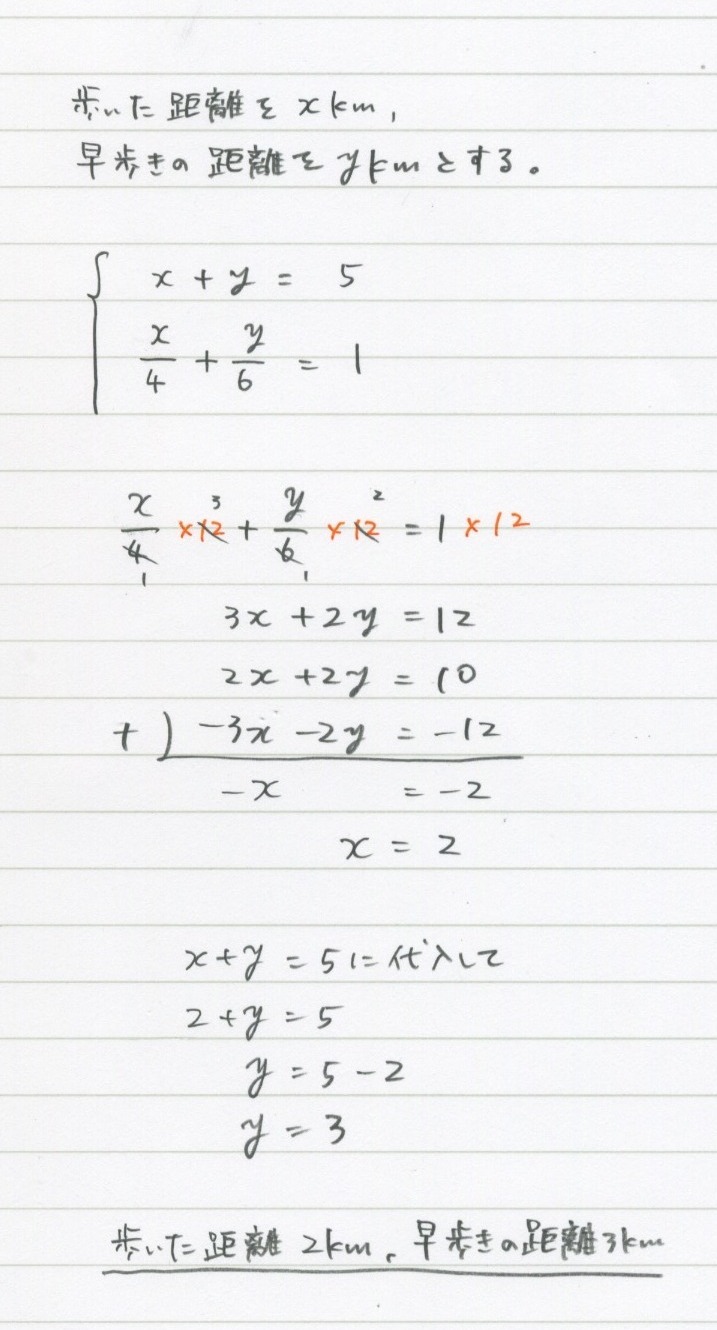 歩いた距離を xkm,
早歩きの距離を ykmとする。
x + y = 5
x/4 + y/6 = 1
x/4 ×12 3 1 + y/6 ×12 2 1 = 1 ×12
3x + 2y = 12
2x + 2y = 10
+ ) -3x - 2y = -12
-x = -2
x = 2
x + y = 5 に代入して
2 + y = 5
y = 5 - 2
y = 3
歩いた距離 2km, 早歩きの距離 3km